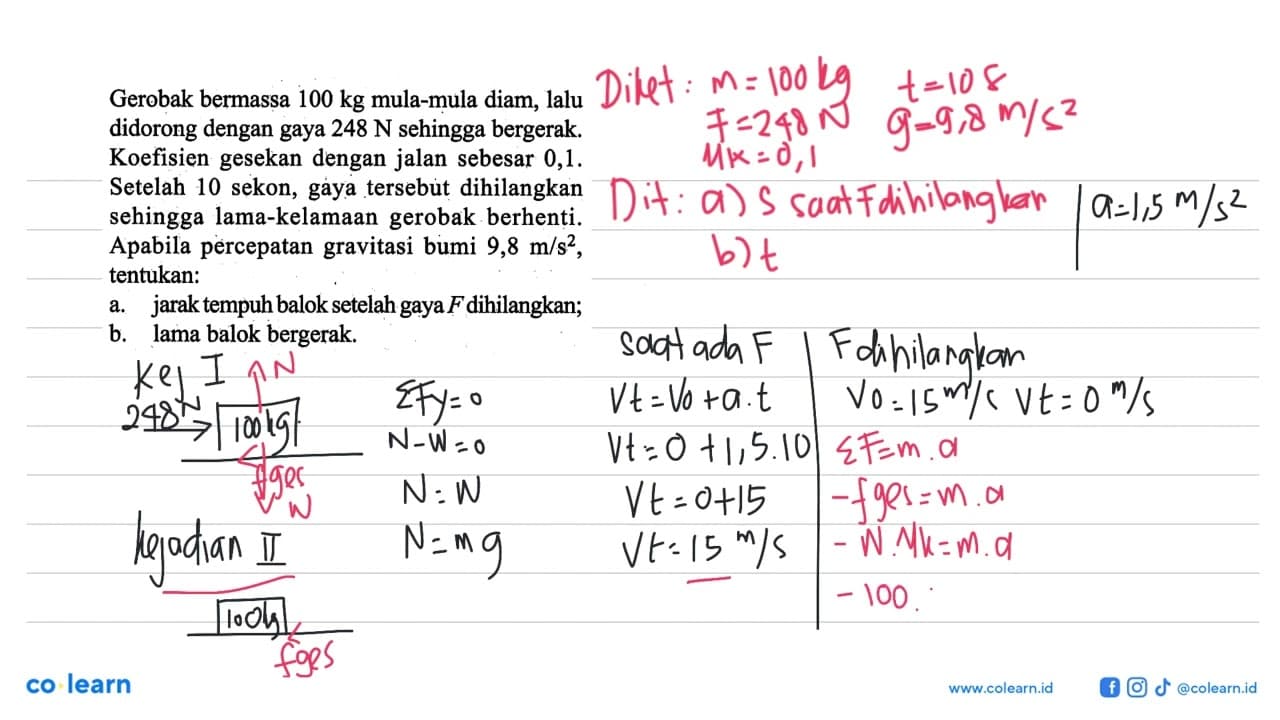 Gerobak bermassa 100 kg mula-mula diam, lalu
didorong dengan gaya 248 N sehingga bergerak.
Koefisien gesekan dengan jalan sebesar 0,1.
Setelah 10 sekon, gaya tersebut dihilangkan
sehingga lama-kelamaan gerobak berhenti.
Apabila percepatan gravitasi bumi 9,8 m/s²,
tentukan:
a. jarak tempuh balok setelah gaya F dihilangkan;
b. lama balok bergerak.
Diket : m = 100 kg t = 10 s
F = 248 N g = 9,8 m/s²
μk = 0,1
Dit : a) S saat F dihilangkan
b) t
a = 1,5 m/s²
Kej I
N
248 N
100 kg
fges
W
kejadian II
100 kg
fges
ΣFy = 0
N - W = 0
N = W
N = m g
saat ada F
Vt = Vo + a . t
Vt = 0 + 1,5 . 10
Vt = 0 + 15
Vt = 15 m/s
F dihilangkan
Vo = 15 m/s Vt = 0 m/s
ΣF = m . a
- fges = m . a
- N . μk = m . a
- 100 .
co learn
www.colearn.id
@colearn.id